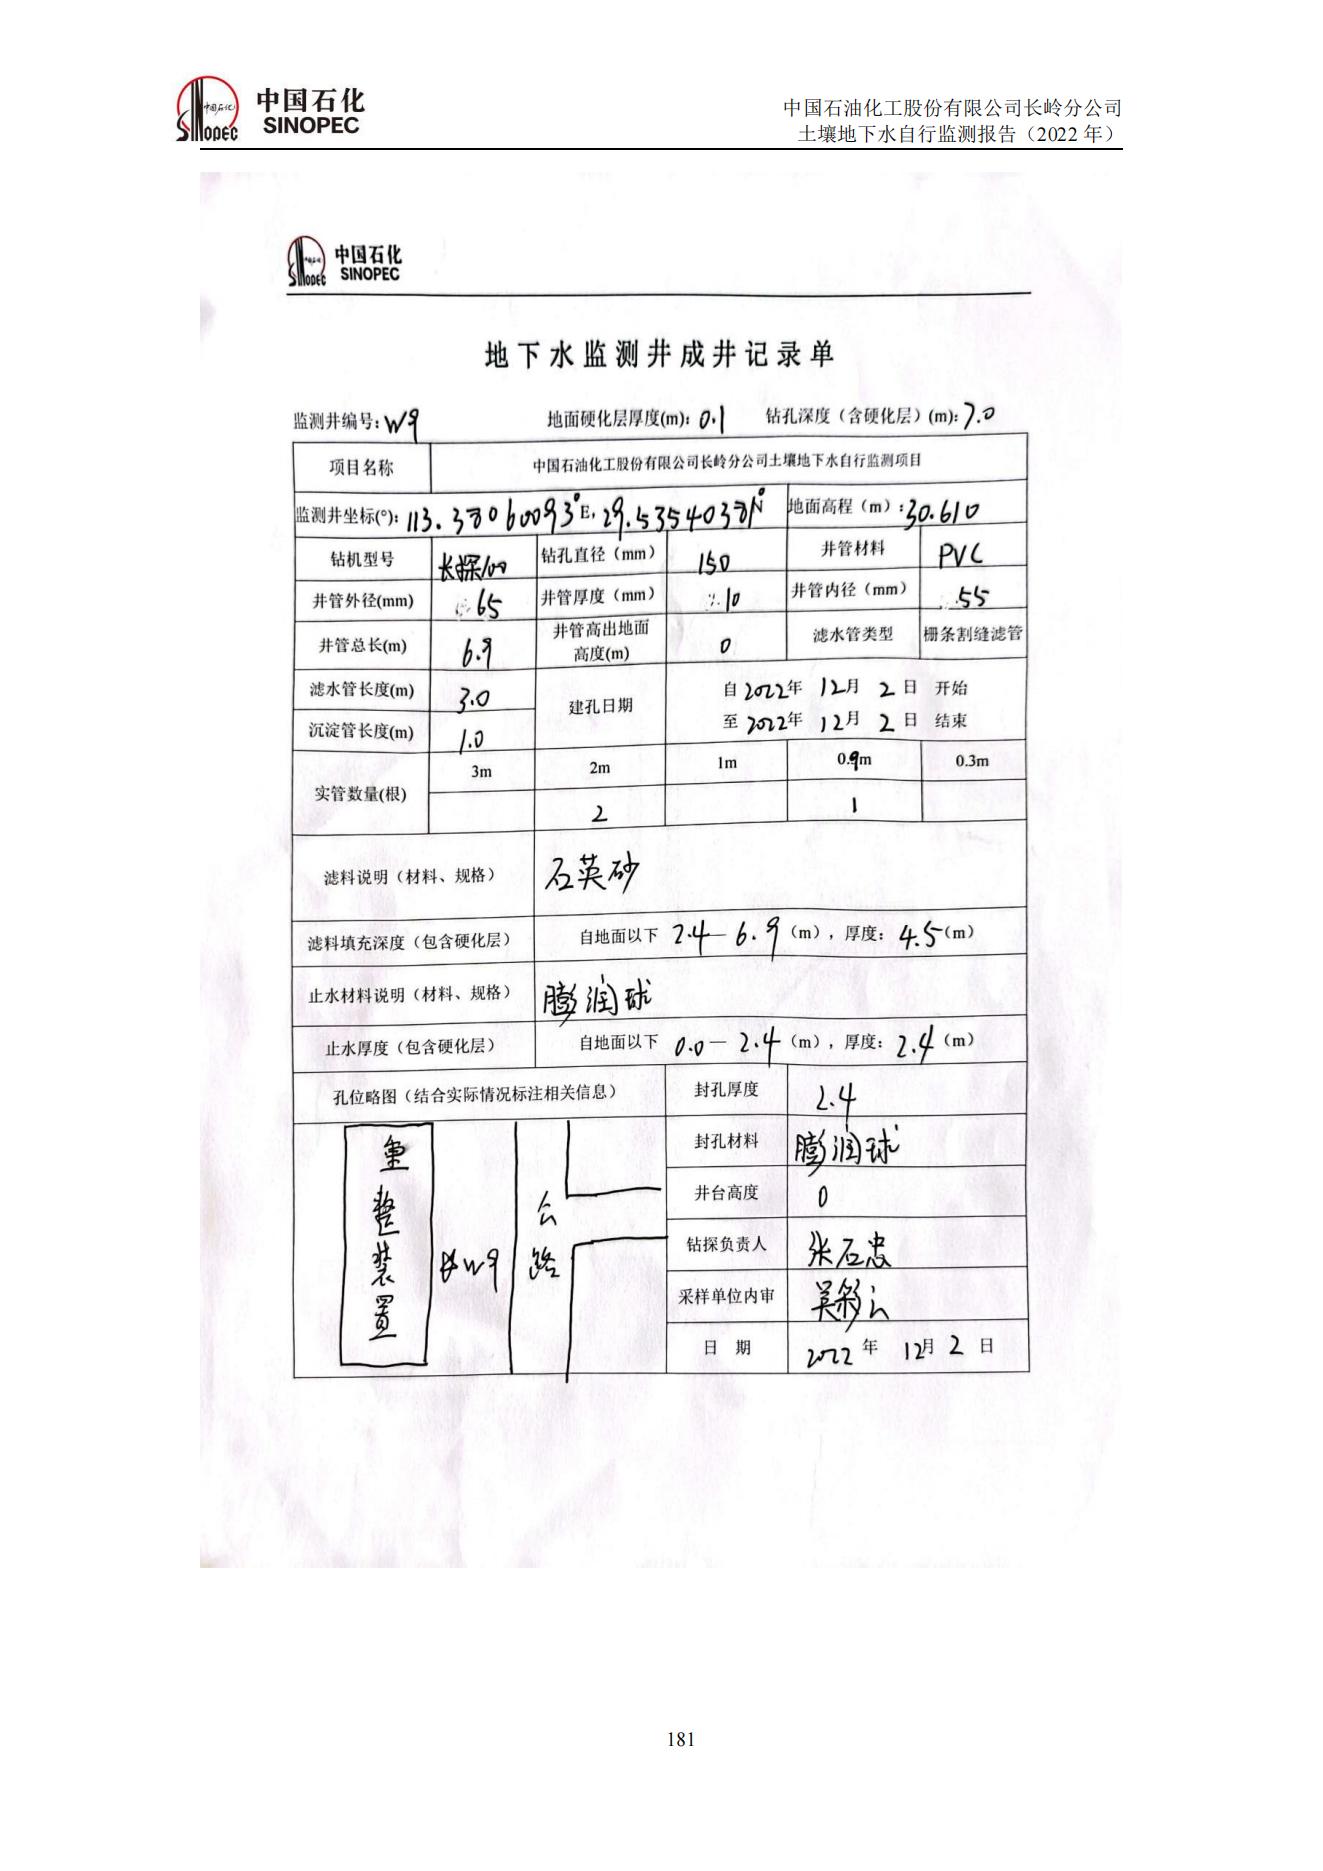 中国石化
SINOPEC
中国石油化工股份有限公司长岭分公司
土壤地下水自行监测报告（2022 年）
中国石化
SINOPEC
地下水监测井成井记录单
监测井编号：W9 地面硬化层厚度(m)：0.1 钻孔深度（含硬化层）(m)：7.0
项目名称 中国石油化工股份有限公司长岭分公司土壤地下水自行监测项目
监测井坐标(°)：113.378060093°E，29.53540378°N 地面高程（m）：30.610
钻机型号 长探100 钻孔直径（mm） 150 井管材料 PVC
井管外径(mm) 65 井管厚度（mm） 10 井管内径（mm） 55
井管总长(m) 6.9 井管高出地面高度(m) 0 滤水管类型 栅条割缝滤管
滤水管长度(m) 3.0 建孔日期 自 2022年 12月 2 日 开始
沉淀管长度(m) 1.0 至 2022年 12月 2 日 结束
实管数量(根) 3m 2m 1m 0.9m 0.3m
2 1
滤料说明（材料、规格） 石英砂
滤料填充深度（包含硬化层） 自地面以下 2.4— 6.9 （m），厚度：4.5（m）
止水材料说明（材料、规格） 膨润球
止水厚度（包含硬化层） 自地面以下 0.0— 2.4 （m），厚度：2.4（m）
孔位略图（结合实际情况标注相关信息） 封孔厚度 2.4
封孔材料 膨润球
井台高度 0
钻探负责人 张石忠
采样单位内审 吴彩云
日 期 2022 年 12月 2 日
重整装置
井W9
公路
181